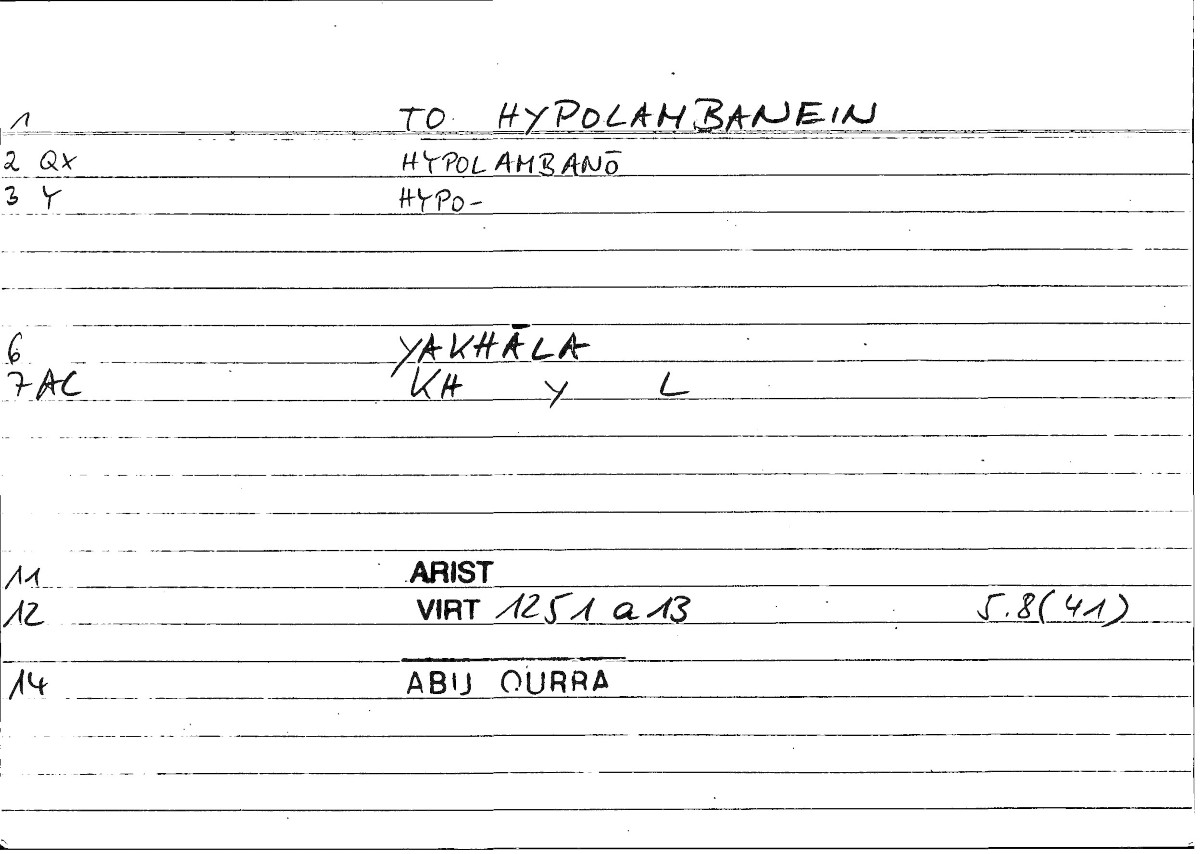 1 TO HYPOLAMBANEIN
2 QX HYPOLAMBANŌ
3 Y HYPO-
6 YAKHĀLA
7 AC KH Y L
11 ARIST
12 VIRT 1251 a 13 5.8(41)
14 ABU QURRA